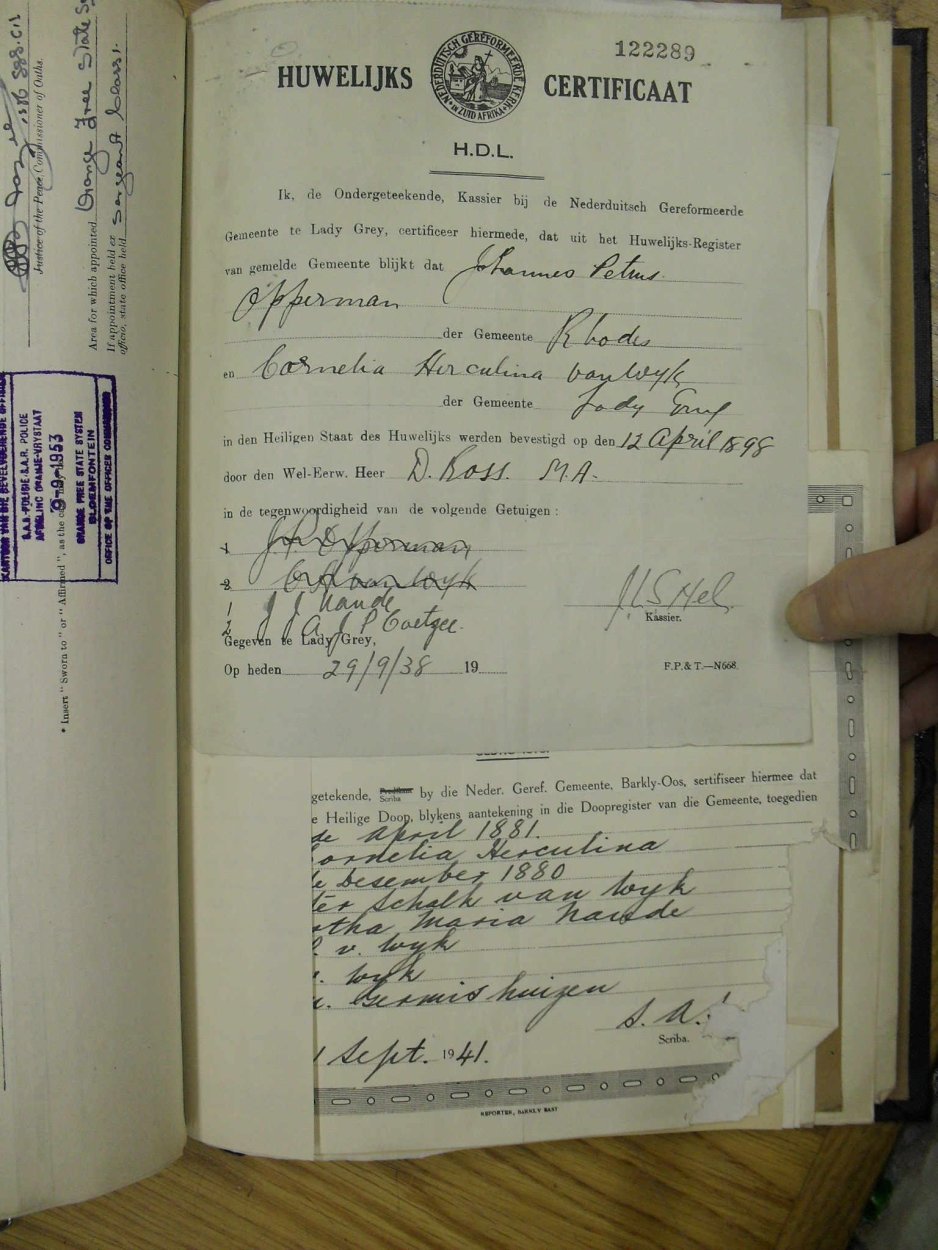 122289
HUWELIJKS CERTIFICAAT
NEDERDUITSCH GEREFORMEERDE KERK IN ZUID AFRIKA
H.D.L.
Ik, de Ondergeteekende, Kassier bij de Nederduitsch Gereformeerde
Gemeente te Lady Grey, certificeer hiermede, dat uit het Huwelijks-Register
van gemelde Gemeente blijkt dat Johannes Petrus
Opperman
der Gemeente Rhodes
en Cornelia Herculina van Wyk
der Gemeente Lady Grey
in den Heiligen Staat des Huwelijks werden bevestigd op den 12 April 1898
door den Wel-Eerw. Heer D. Ross. M.A.
in de tegenwoordigheid van de volgende Getuigen :
1 J. P. Opperman
2 C H van Wyk
1 J J Naude
2 J A J P Coetzee
Kassier.
Gegeven te Lady Grey,
Op heden 29/9/38 19
F.P.& T.—N668.
getekende, Scriba by die Neder. Geref. Gemeente, Barkly-Oos, sertifiseer hiermee dat
e Heilige Doop, blykens aantekening in die Doopregister van die Gemeente, toegedien
de April 1881.
ornelia Herculina
de Desember 1880
ter Schalk van Wyk
otha Maria Naude
v. Wyk
Wyk
Germishuizen
S. A.
Scriba.
Sept. 1941.
REPORTER, BARKLY EAST
Justice of the Peace, Commissioner of Oaths.
Area for which appointed Orange Free State
If appointment held ex
officio, state office held Sergeant Class 1.
KANTOOR VAN DIE BEVELVOERENDE OFFISIER
S.A.R.-POLISIE-S.A.R. POLICE
AFDELING ORANJE-VRYSTAAT
9-9-1953
ORANGE FREE STATE SYSTEM
BLOEMFONTEIN
OFFICE OF THE OFFICER COMMANDING
* Insert "Sworn to" or "Affirmed", as the